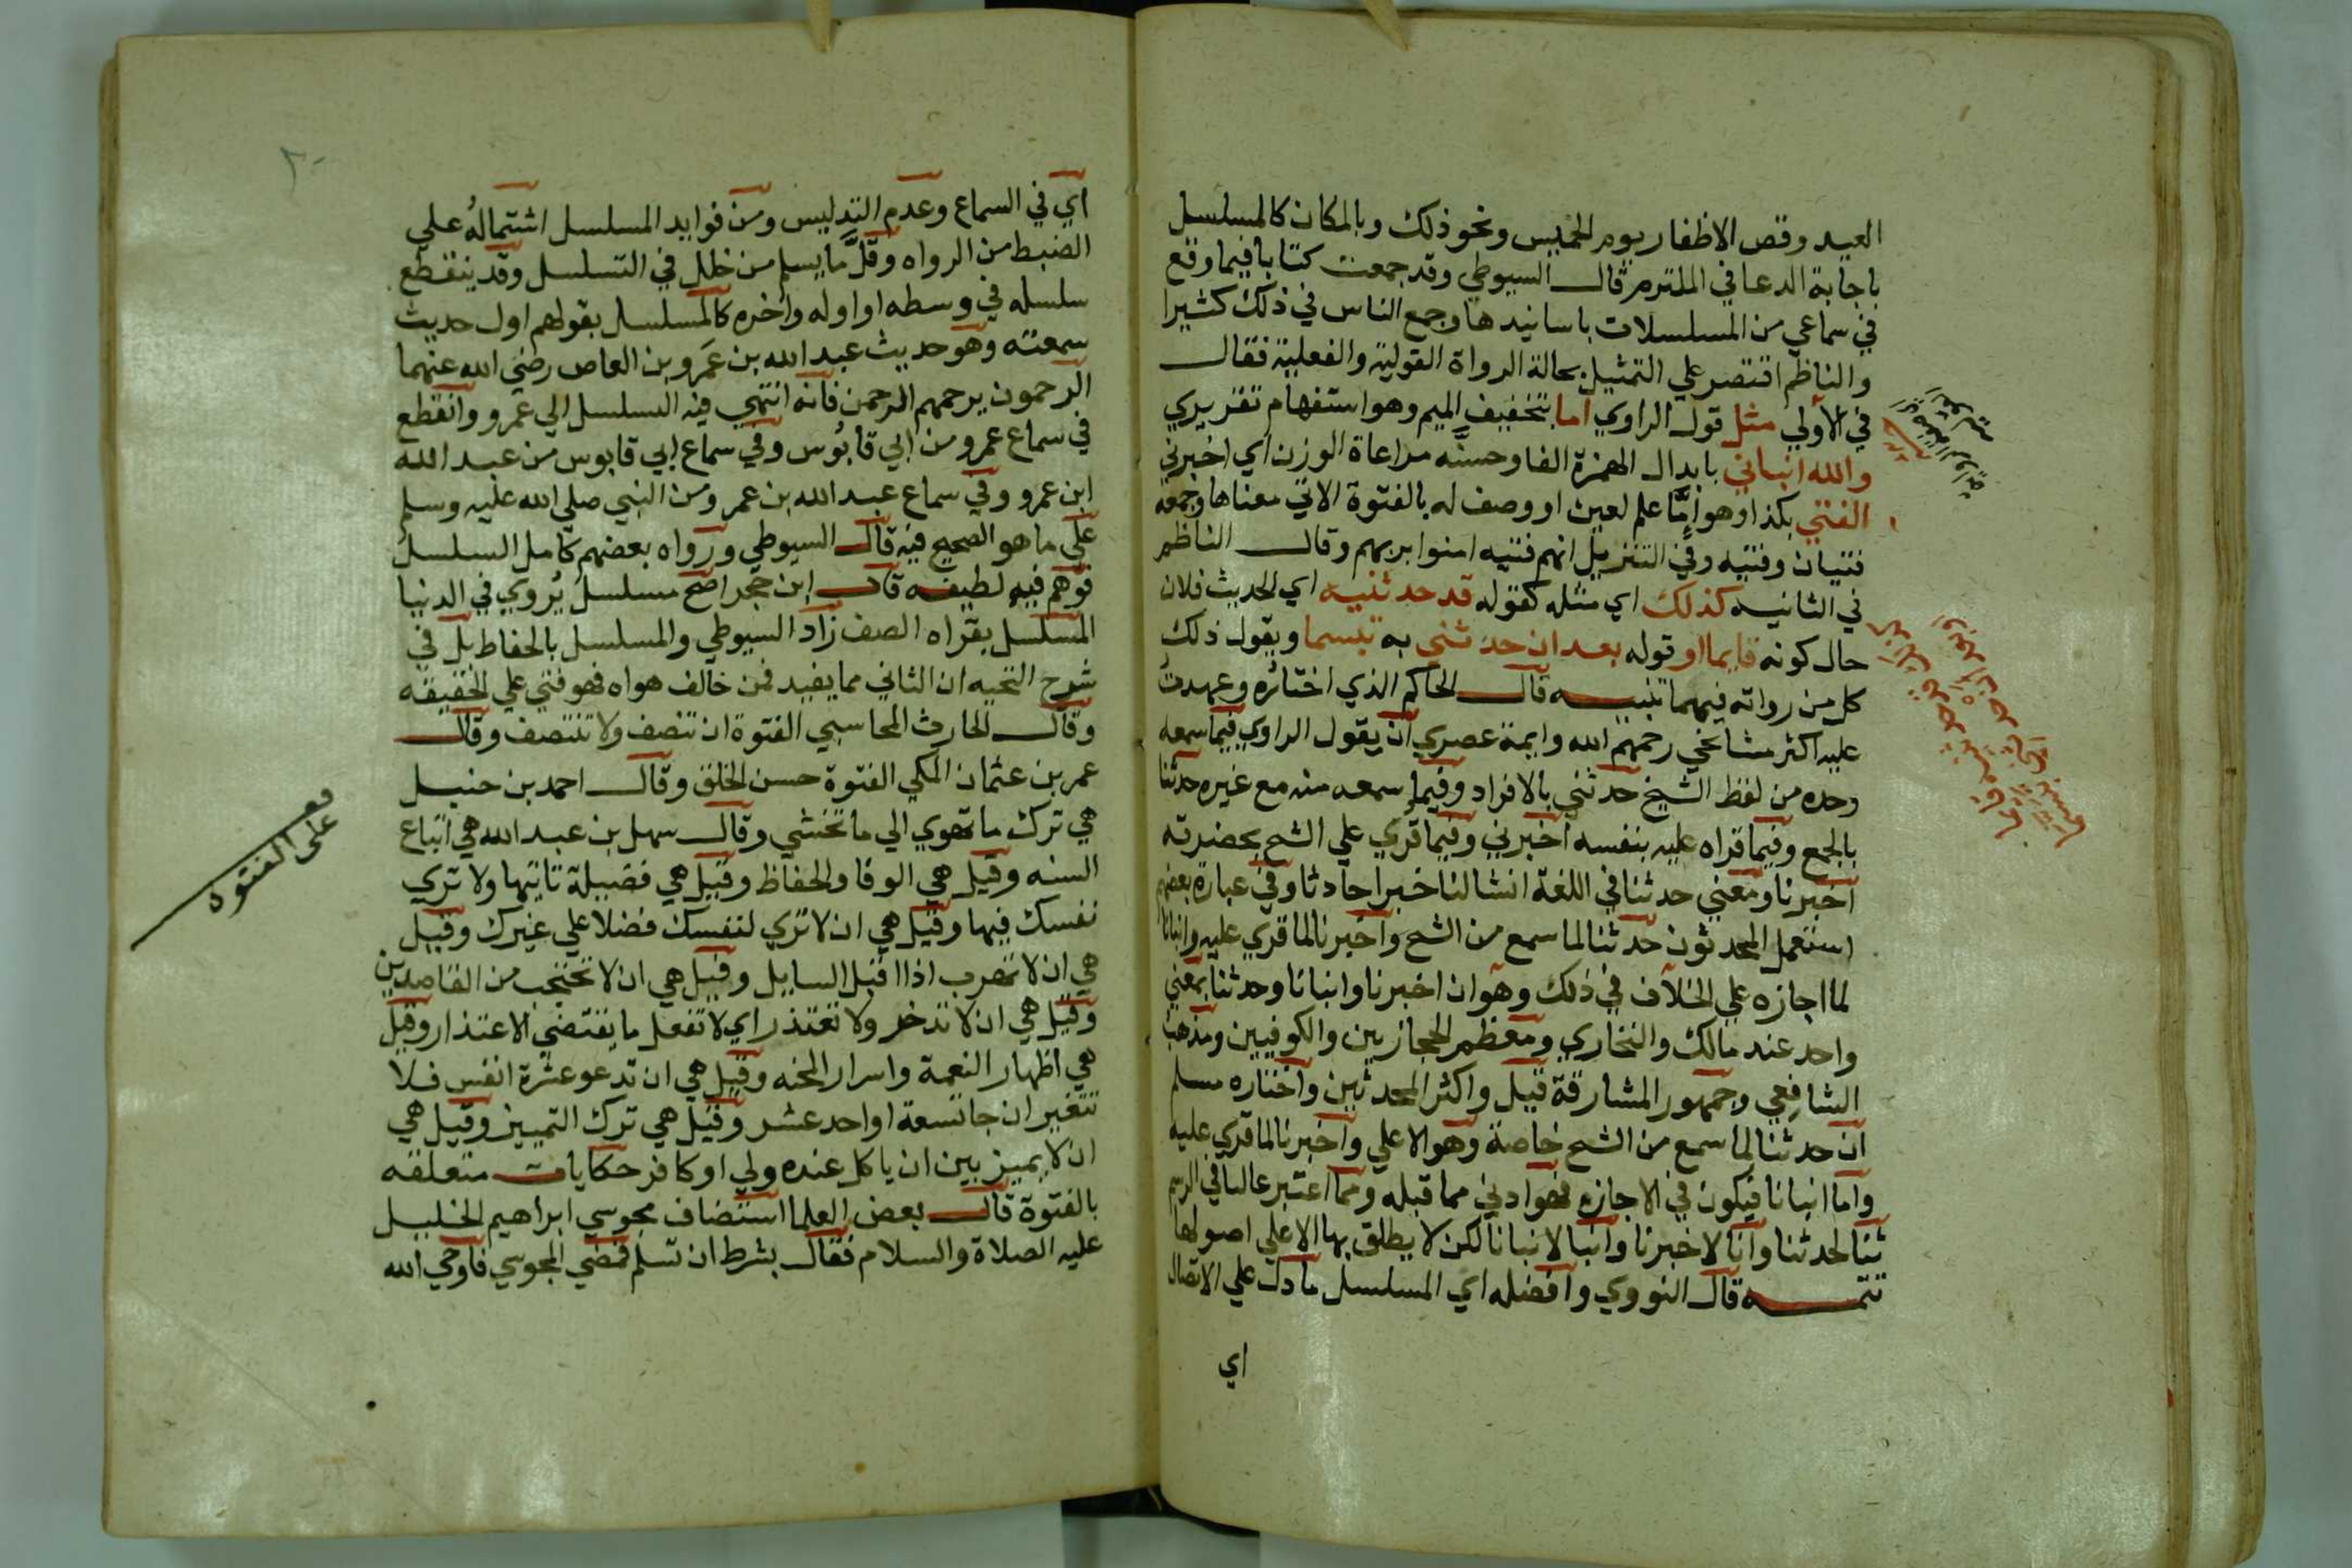 العيد وقص الاظفار يوم الخميس ونحو ذلك وبالمكان كالمسلسل
باجابة الدعا في الملتزم قال السيوطي وقد جمعت كتابا فيما وقع
في سماعي من المسلسلات باسانيدها وجمع الناس في ذلك كثيرا
والناظم اقتصر علي التمثيل بحالة الرواة القولية والفعلية فقال
في الأولي مثل قول الراوي اما بتخفيف الميم وهو استفهام تقريري
والله انباني بابدال الهمزة الفا وحسنَّه مراعاة الوزن اي اخبرني
الفتي بكذا وهو إمَّا علم لعين او وصف له بالفتوة الاتي معناها وجمعه
فتيان وفتيه وفي التنزيل انهم فتيه امنوا بربهم وقال الناظم
في الثانيه كذلك اي مثله كقوله قد حدثنيه اي الحديث فلان
حال كونه قايما او قوله بعد ان حدثني به تبسما ويقول ذلك
كل من رواته فيهما تنبيه قال الحاكم الذي اختائره وعهدتُ
عليه اكثر مشايخي رحمهم الله وايمة عصري ان يقول الراوي فيما سمعه
وحده من لفظ الشيخ حدثني بالافراد وفيما سمعه منه مع غيره حدثنا
بالجمع وفيما قراه عليه بنفسه اخبرني وفيما قري علي الشح بحضرته
اخبرنا ومعني حدثنا في اللغة انشا لنا خبرا حادثا وفي عبارة بعضهم
استعمل المحدثون حدثنا لما سمع من الشح واخبرنا لما قري عليه وانبانا
لما اجازه علي الخلاف في ذلك وهو ان اخبرنا وانبانا وحدثنا بمعني
واحد عند مالك والبخاري ومعظم الحجازيين والكوفيين ومذهب
الشافعي وجمهور المشارقة قيل واكثر المحدثين واختاره مسلم
ان حدثنا لما سمع من الشح خاصة وهو الاعلي واخبرنا لما قري عليه
واما انبانا فيكون في الاجازه فهو ادني مما قبله ومما اعتبر غالبا في الرسم
ثنا لحدثنا وانا لاخبرنا وانبا لانبانا لكن لا يطلق بها الا علي اصولها
تتمـه قال النووي وافضله اي المسلسل ما دل علي الاتصال
اي
٢٠
اي في السماع وعدم التدليس ومن فوايد المسلسل اشتمالهُ علي
الضبط من الرواه وقلَّ ما يسلم من خلل في التسلسل وقد ينقطع
سلسله في وسطه او اوله واخره كالمسلسل بقولهم اول حديث
سمعته وهو حديث عبد الله بن عَمرو بن العاص رضي الله عنهما
الرحمون يرحمهم الرحمن فانه انتهي فيه السلسل الي عمرو وانقطع
في سماع عمرو من ابي قابُوس وفي سماع ابي قابوس من عبد الله
ابن عمرو وفي سماع عبد الله بن عمرو من النبي صلي الله عليه وسلم
علي ما هو الصحيح فيه قال السيوطي ورواه بعضهم كامل السلسل
فوهم فيه لطيفه قال ابن حجر اصح مسلسل يُروي في الدنيا
المسلسل بقراه الصف زاد السيوطي والمسلسل بالحفاظ بل في
شرح النخبه ان الثاني مما يفيد فمن خالف هواه فهو فتي علي الحقيقه
وقال الحارث المحاسبي الفتوة ان تنصف ولا تنتصف وقال
عمر بن عثمان المكي الفتوة حسن الخلق وقال احمد بن حنبل
هي ترك ما تهوي الي ما تخشي وقال سهل بن عبد الله هي اتباع
السنه وقيل هي الوفا والحفاظ وقيل هي فضيلة تاتيها ولا تري
نفسك فيها وقيل هي ان لا تري لنفسك فضلا علي غيرك وقيل
هي ان لا تهرب اذا اقبل السايل وقيل هي ان لا تحتجب من القاصدين
وقيل هي ان لا تدخر ولا تعتذر اي لا تفعل ما يقتضي الاعتذار وقيل
هي اظهار النعمة واسرار المحنه وقيل هي ان تدعو عشرة انفس فلا
تتغير ان جا تسعة او احد عشر وقيل هي ترك التمييز وقيل هي
ان لا يميز بين ان ياكل عنده ولي او كافر حكايات متعلقه
بالفتوة قال بعض العلما استضاف مجوسي ابراهيم الخليل
عليه الصلاة والسلام فقال بشرط ان تسلم فمضي المجوسي فاوحي الله
على الفتوه